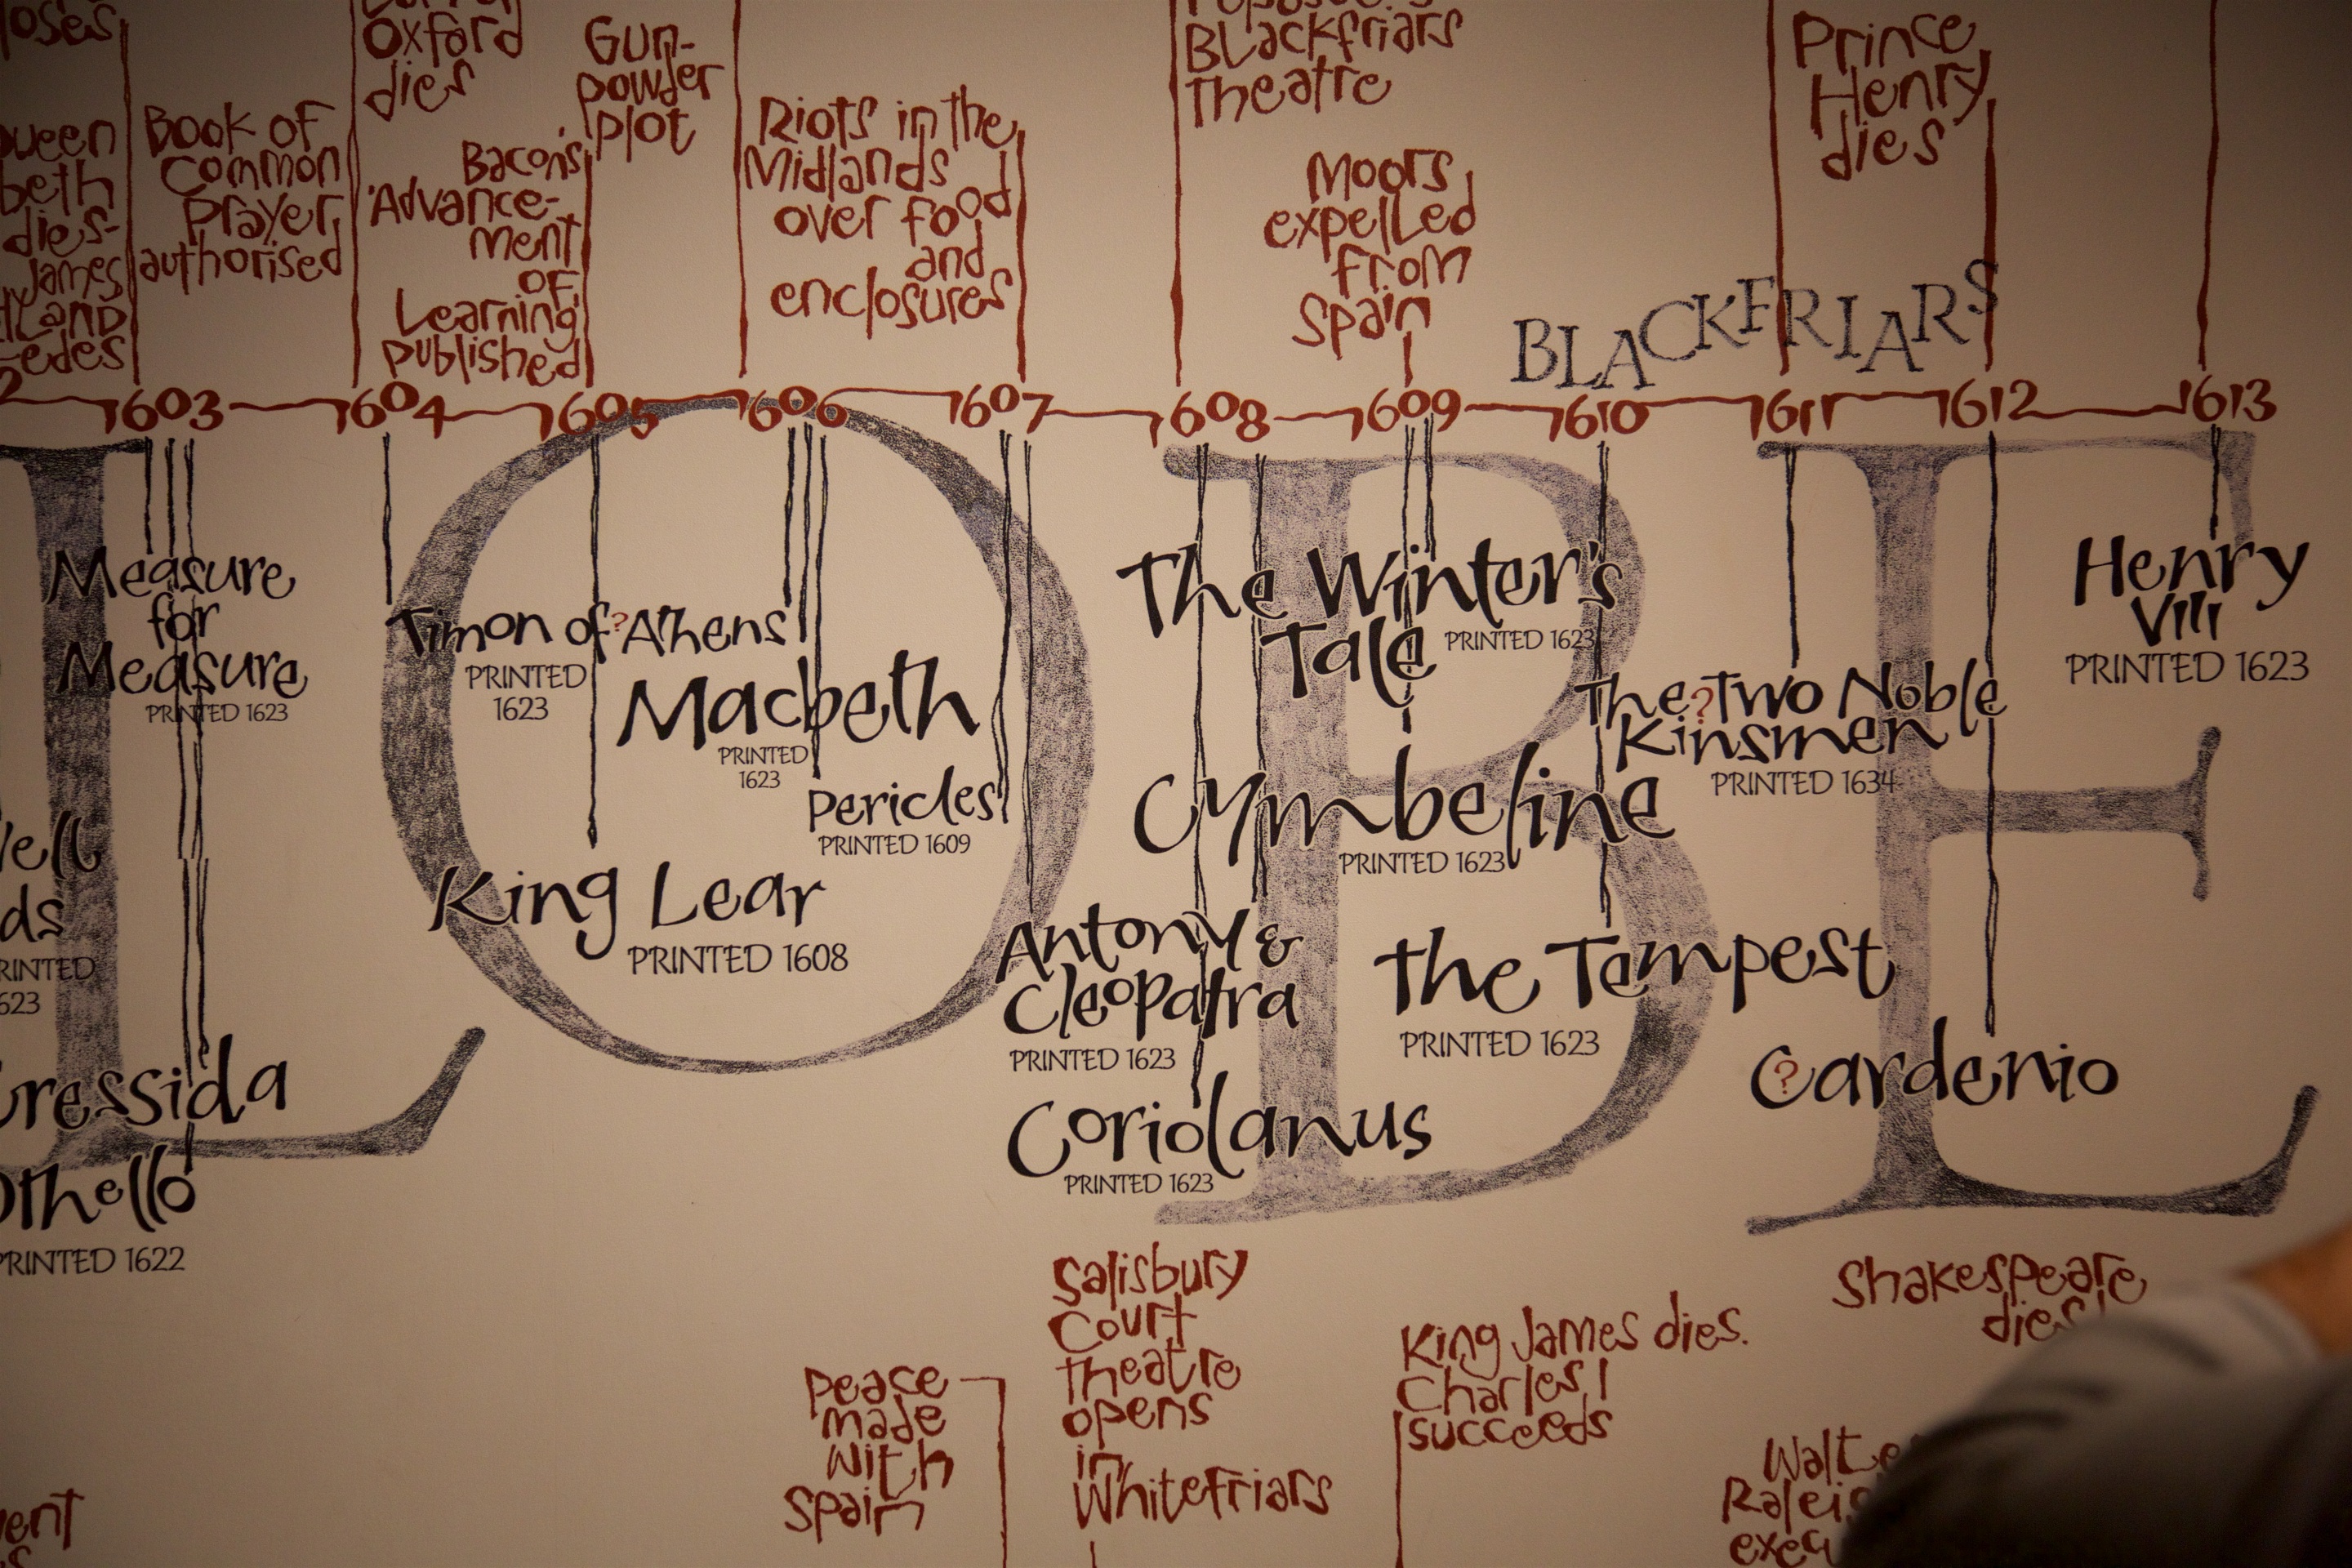 Oxford
dies
Book of
common
prayer
authorised
dies-
James
Bacon's
'Advance-
ment
of
Learning'
published
Gun-
powder
plot
Riots in the
Midlands
over food
and
enclosures
Blackfriars
theatre
Moors
expelled
from
Spain
Prince
Henry
dies
BLACKFRIARS
1603 1604 1605 1606 1607 1608 1609 1610 1611 1612 1613
Measure
for
Measure
PRINTED 1623
Othello
PRINTED 1622
Timon of ? Athens
PRINTED
1623
Macbeth
PRINTED
1623
Pericles
PRINTED 1609
King Lear
PRINTED 1608
The Winter's
Tale PRINTED 1623
Cymbeline
PRINTED 1623
Antony &
Cleopatra
PRINTED 1623
Coriolanus
PRINTED 1623
The Tempest
PRINTED 1623
The ? Two Noble
Kinsmen
PRINTED 1634
Henry
VIII
PRINTED 1623
? Cardenio
LOBE
Peace
made
with
Spain
Salisbury
Court
theatre
opens
in
Whitefriars
King James dies.
Charles I
succeeds
Shakespeare
dies